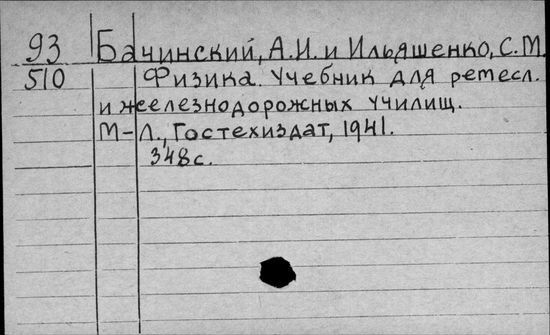 93 Бачинский, А.И. и Ильяшенко, С.М.
510 Физика. Учебник для ремесл.
и железнодорожных училищ.
М-Л., Гостехиздат, 1941.
348с.